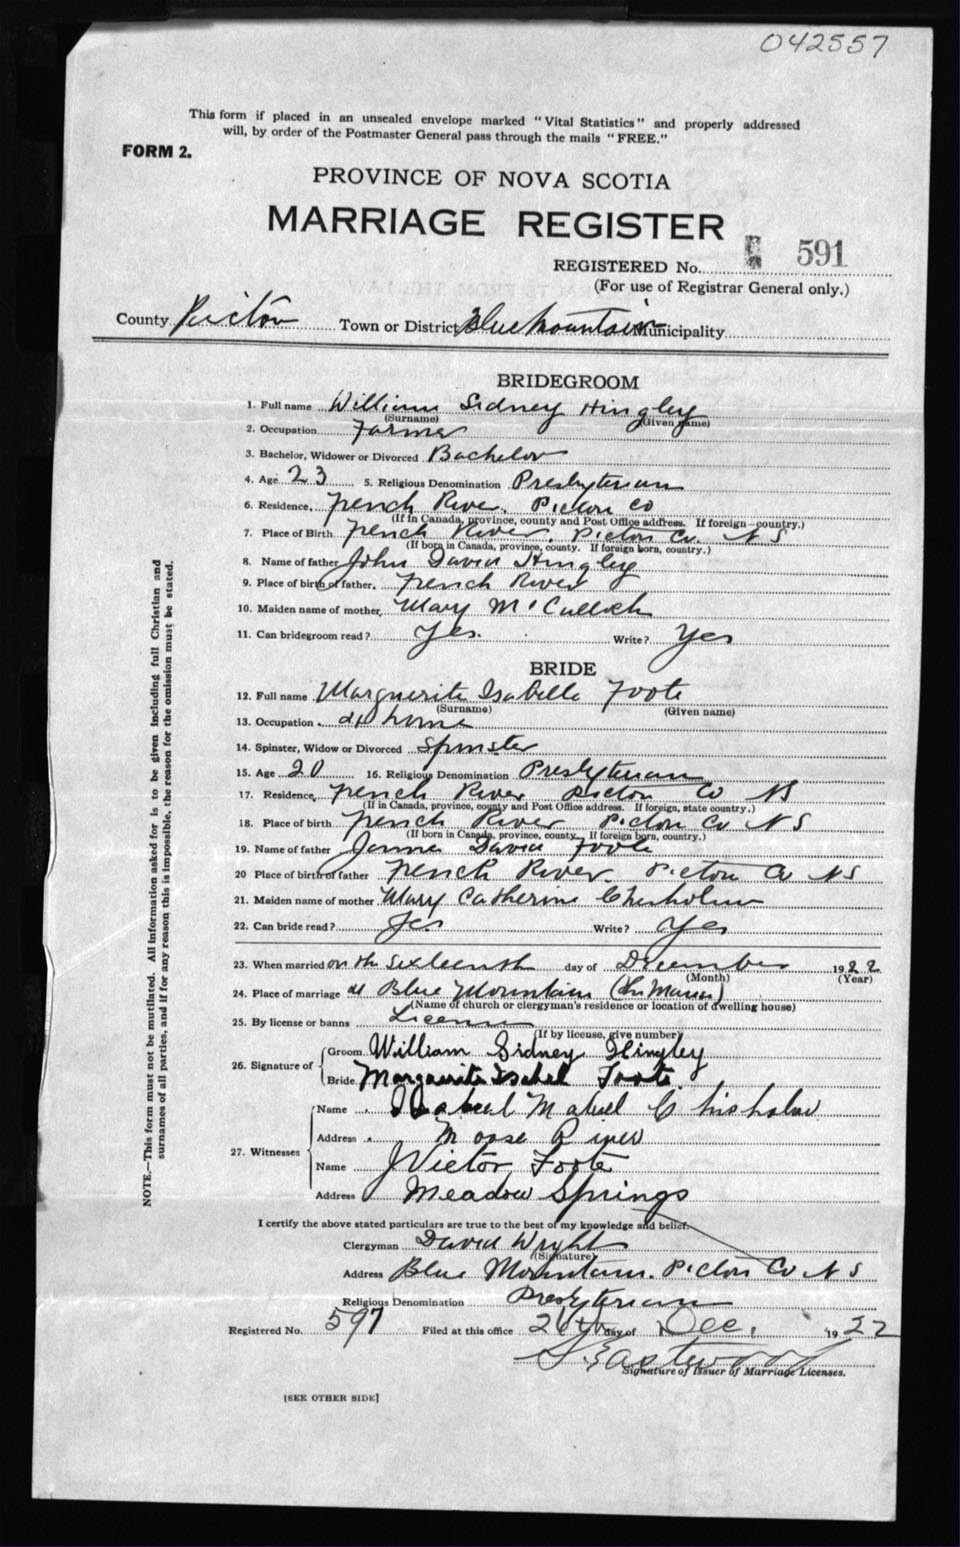 042557
This form if placed in an unsealed envelope marked "Vital Statistics" and properly addressed
will, by order of the Postmaster General pass through the mails "FREE."
FORM 2.
PROVINCE OF NOVA SCOTIA
MARRIAGE REGISTER
REGISTERED No. 591
(For use of Registrar General only.)
County Pictou Town or District Blue Mountain Municipality
BRIDEGROOM
1. Full name William Sidney Hingley
(Surname) (Given name)
2. Occupation Farmer
3. Bachelor, Widower or Divorced Bachelor
4. Age 23 5. Religious Denomination Presbyterian
6. Residence, French River, Pictou Co
(If in Canada, province, county and Post Office address. If foreign—country.)
7. Place of Birth French River, Pictou Co. N S
(If born in Canada, province, county. If foreign born, country.)
8. Name of father John David Hingley
9. Place of birth of father, French River
10. Maiden name of mother, Mary McCulloch
11. Can bridegroom read? Yes. Write? Yes
BRIDE
12. Full name Marguerite Isabelle Foote
(Surname) (Given name)
13. Occupation at home
14. Spinster, Widow or Divorced Spinster
15. Age 20 16. Religious Denomination Presbyterian
17. Residence, French River Pictou Co NS
(If in Canada, province, county and Post Office address. If foreign, state country.)
18. Place of birth French River Pictou Co N S
(If born in Canada, province, county. If foreign born, country.)
19. Name of father James David Foote
20 Place of birth of father French River. Pictou Co NS
21. Maiden name of mother Mary Catherine Chisholm
22. Can bride read? Yes Write? Yes
23. When married on the Sixteenth day of December 1922
(Month) (Year)
24. Place of marriage at Blue Mountain (The Manse)
(Name of church or clergyman's residence or location of dwelling house)
25. By license or banns License
(If by license, give number)
26. Signature of Groom William Sidney Hingley
Bride Marguerite Isabel Foote
27. Witnesses Name Mabel Chisholm
Address Moose River
Name J Victor Foote
Address Meadow Springs
I certify the above stated particulars are true to the best of my knowledge and belief.
Clergyman David Wright
(Signature)
Address Blue Mountain. Pictou Co N S
Religious Denomination Presbyterian
Registered No. 597 Filed at this office day of Dec. 1922
Eastwood
Signature of Issuer of Marriage Licenses.
[SEE OTHER SIDE]
NOTE.—This form must not be mutilated. All information asked for is to be given including full Christian and
surnames of all parties, and if for any reason this is impossible, the reason for the omission must be stated.